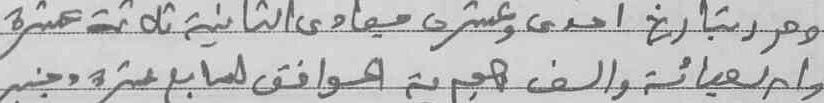 وحرر بتاريخ احدى وعشرى جمادى الثانية ثلاثة عشرة
واربعمائة والف هجرية الموافق لسابع عشرة دجنبر